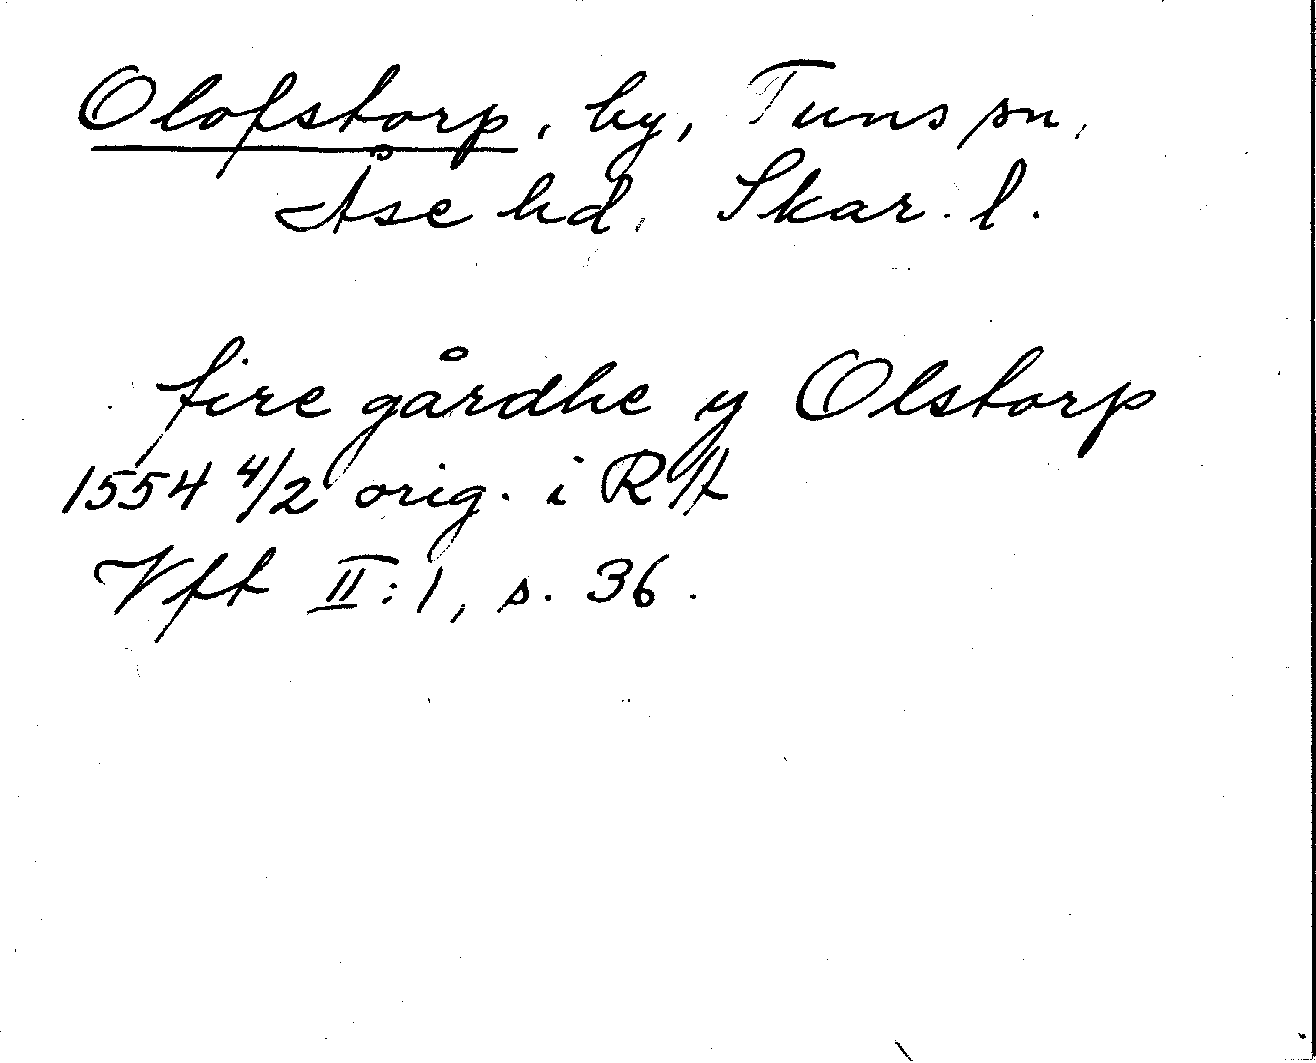 Olofstorp, by, Tuns sn,
Åse hd, Skar. l.
fire gårdhe y Olstorp
1554 4/2 orig. i RA
Vft II:1, s. 36.